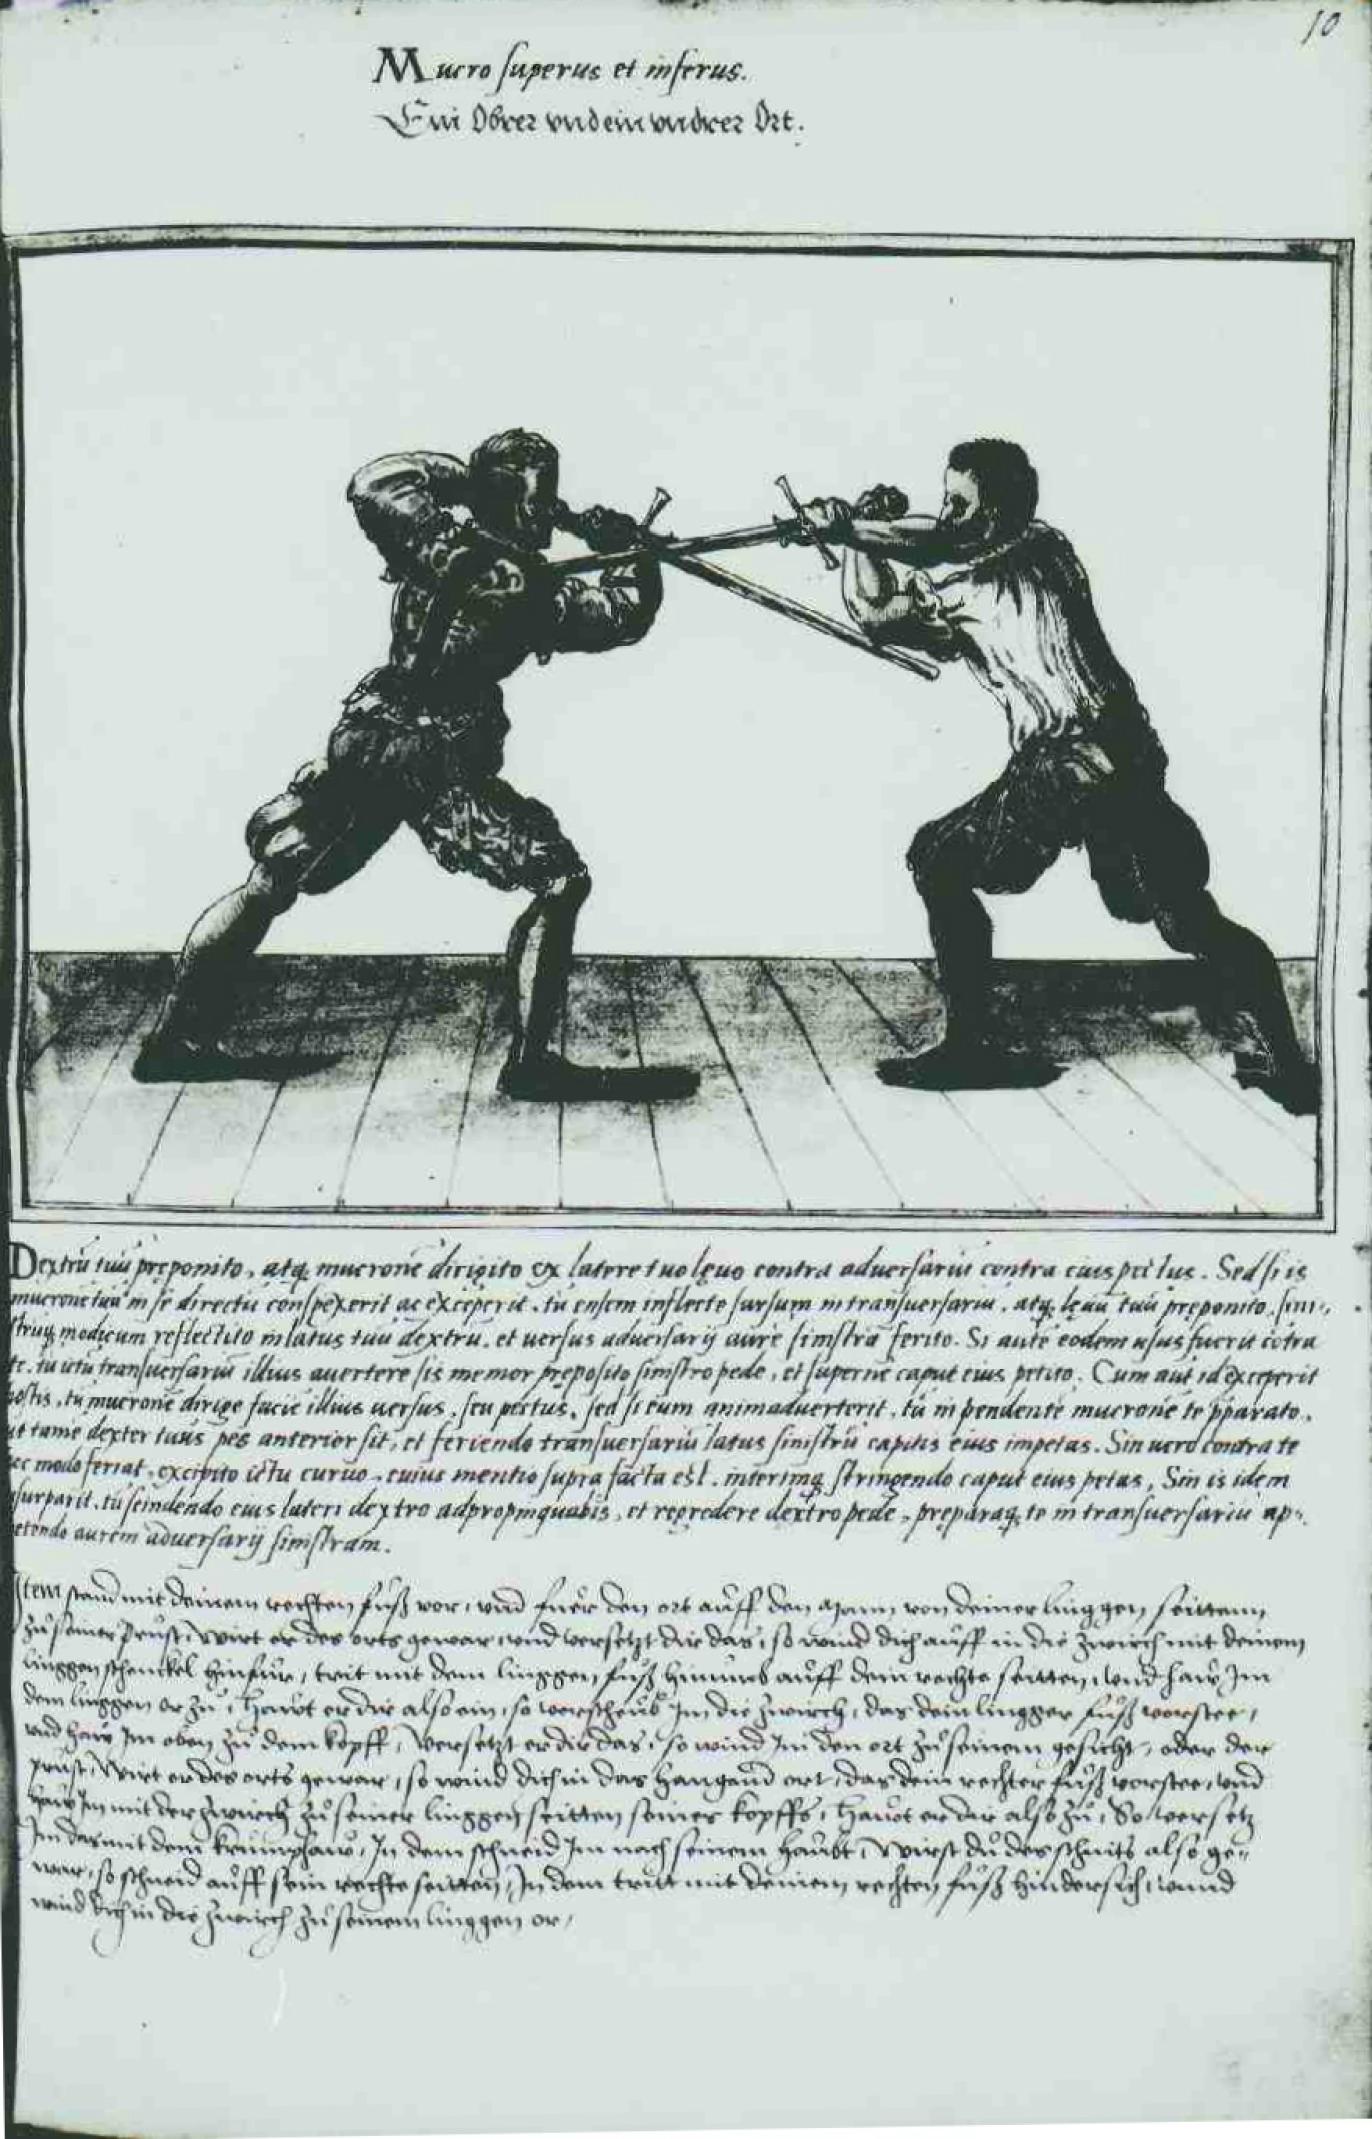 10
Mucro superus et inferus.
Ein Obrer vnd ein vndrer Ort.
Dextrũ tuũ preponito, atq; mucronẽ dirigito ex latere tuo lęuo contra aduersariũ contra eius pectus. Sed si is
mucronẽ tuũ in se directũ conspexerit ac exceperit, tu ensem inflecte sursum in transuersariũ, atq; lęuũ tuũ preponito, sini-
strũq; modicum reflectito in latus tuũ dextrũ, et uersus aduersarij aurẽ sinistrã ferito. Si autẽ eodem usus fuerit cõtra
te, tu ictũ transuersariũ illius auertere sis memor preposito sinistro pede, et supernẽ caput eius petito. Cum aũt id exceperit
hostis, tu mucronẽ dirige faciẽ illius uersus, seu pectus, sed si eum animaduerterit, tũ in pendentẽ mucronẽ te pparato,
ut tamẽ dexter tuus pes anterior sit, et feriendo transuersariũ latus sinistrũ capitis eius impetas. Sin uero contra te
hec modo feriat, excipito ictu curuo, cuius mentio supra facta est, interimq; stringendo caput eius petas, Sin is idem
usurparit, tũ scindendo eius lateri dextro adpropinquabis, et regredere dextro pede, preparaq; te in transuersariũ ap-
petendo aurem aduersarij sinistram.
Item stand mit deinem rechten fůß vor, vnd fuer den ort auff den mann von deiner linggen seittenn
zů seiner prust, Wirt er des orts gewar, vnd versetzt dir das, so wind dich auff in die zwirch mit deinem
linggen schenckel hinfür, trit mit dem linggen fůß hinumb auff dein rechte seitten, vnd haw Im
dem linggen or zů, hawt er dir also ein, so verscheub Im die zwirch, das dein lingger fůß vorstee,
vnd haw Im oben zů dem kopff, Versetzt er dir das, so wind Im den ort zů seinem gesicht, oder der
prust, Wirt er des orts gewar, so wind dich in das hangend ort, das dein rechter fůß vorstee, vnd
haw Im mit der zwirch zů seiner linggen seitten seines kopffs, hawt er dir also zů, So versetz
Im das mit dem krumphaw, In dem schneid Im nach seinem haubt, Wirst du des schnits also ge-
war, so schneid auff sein rechte seitten, In dem tritt mit deinem rechten fůß hindersich, vnnd
wind dich in die zwirch zů seinem linggen or,